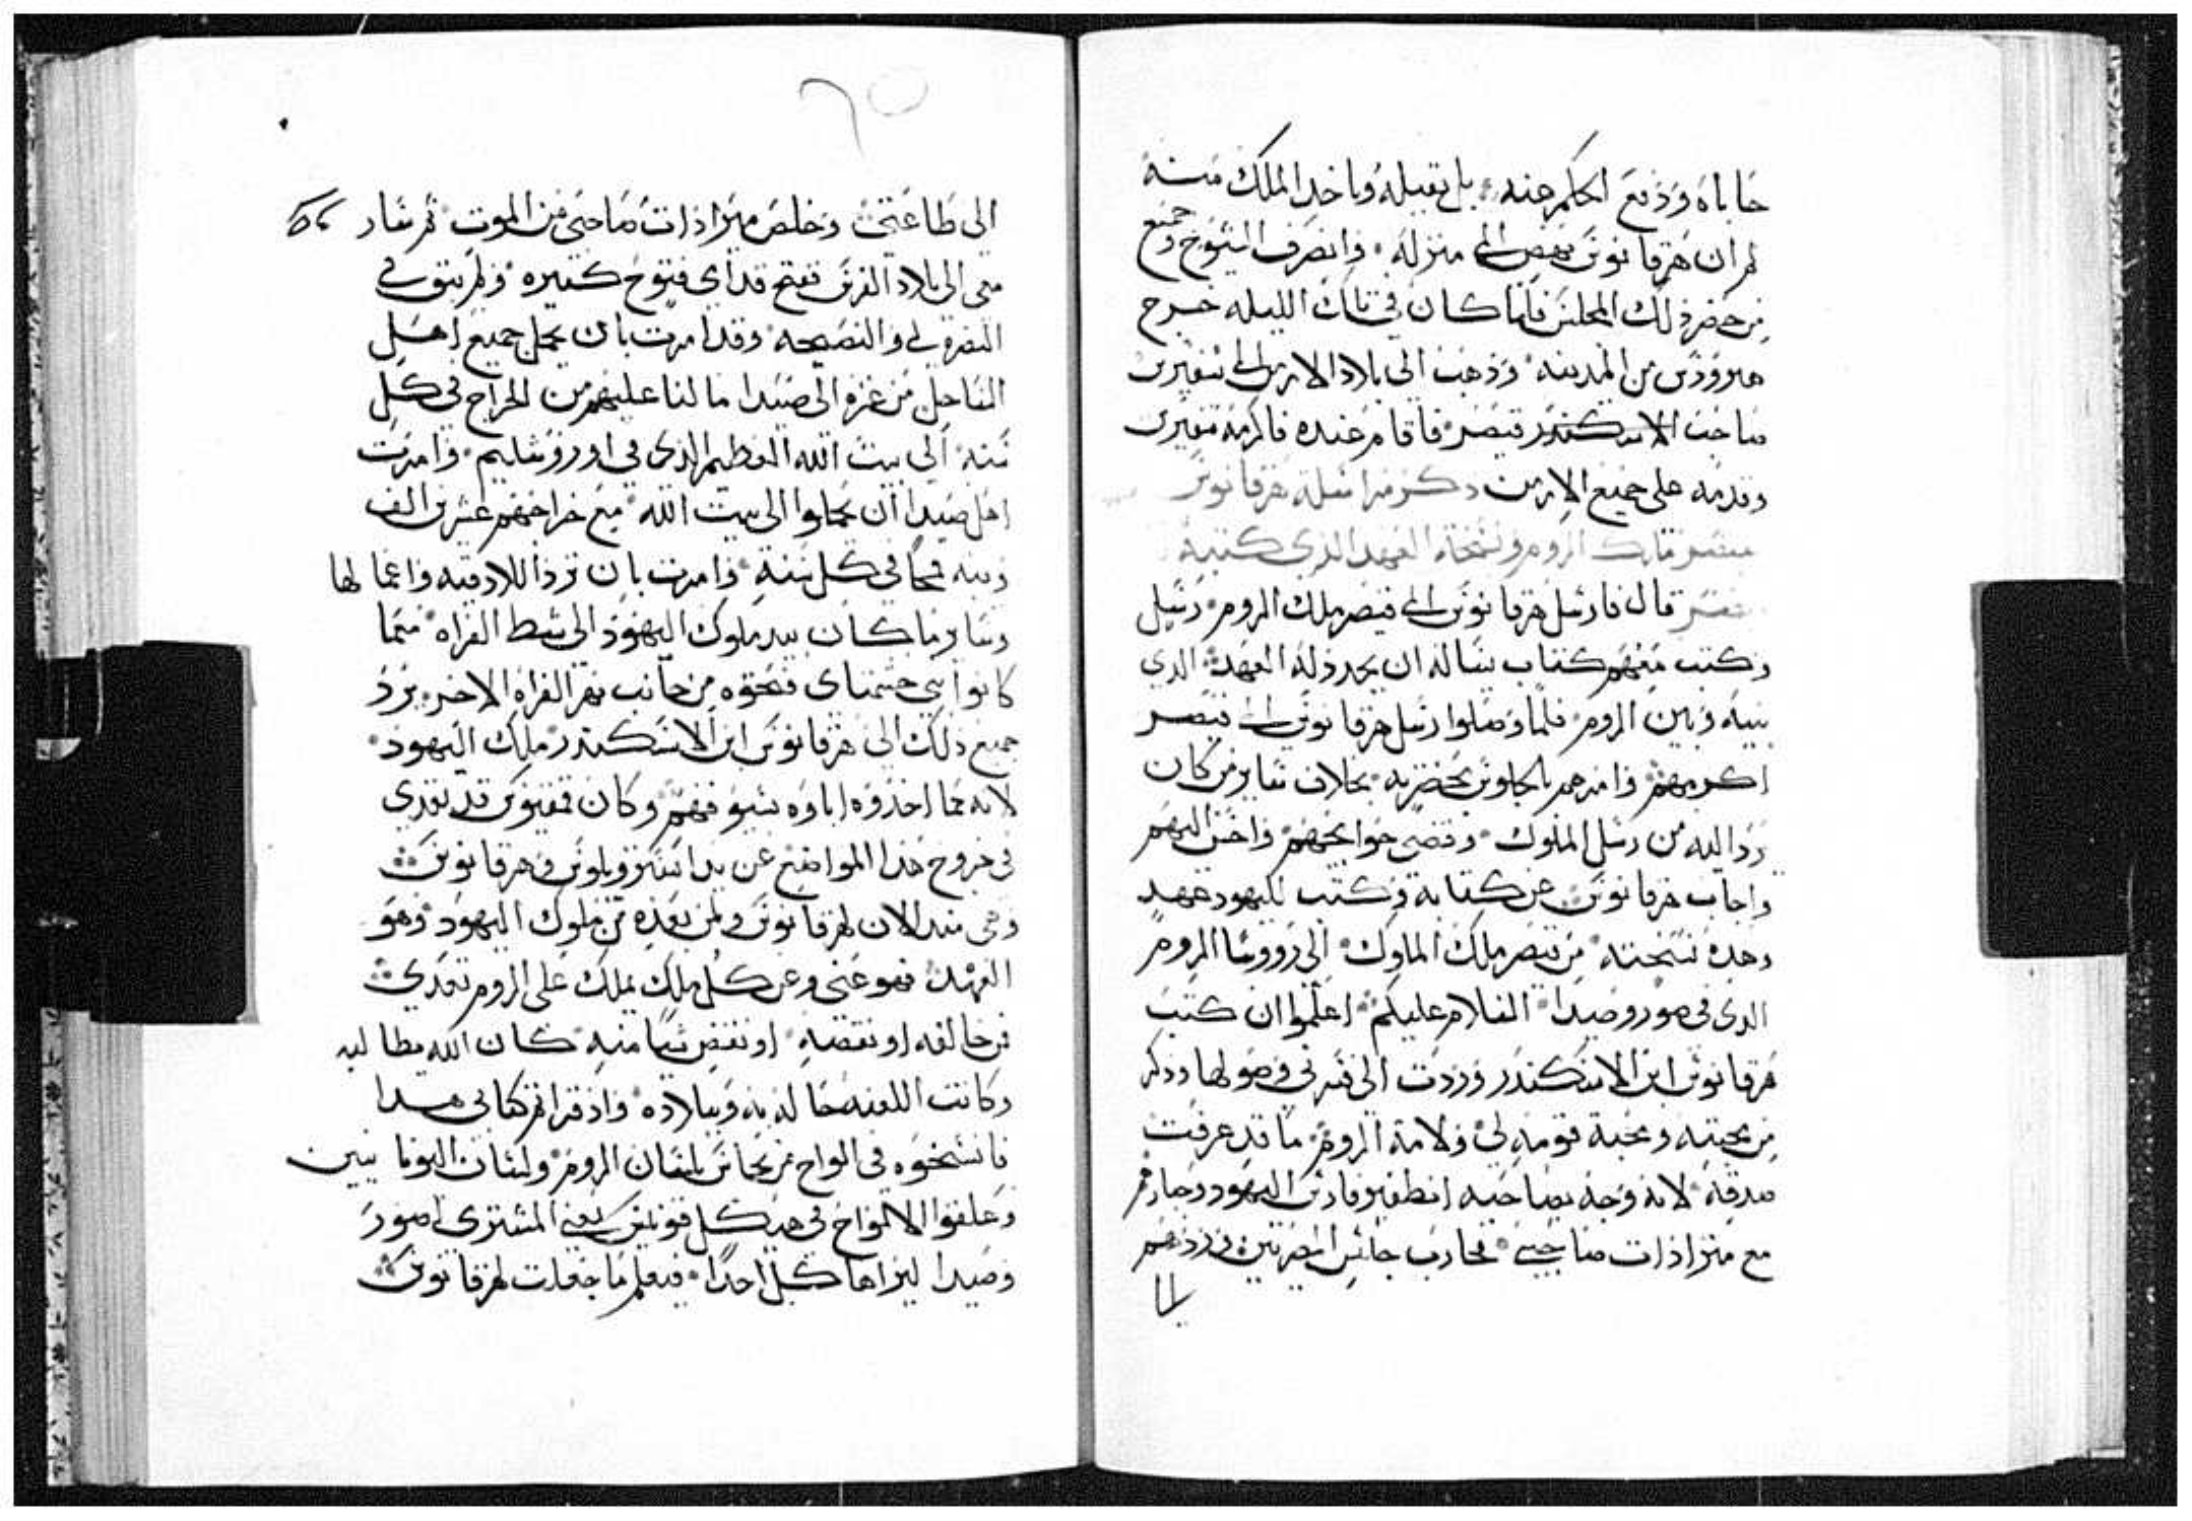 حاباه ودفع الحكم عنه بل يقبله وياخد الملك منه
ثم ان هرقانوس نهض الى منزله وانصرف الشيوخ وجميع
من حضر ذلك المجلس فلما كان في تلك الليله خرج
هيرودس من المدينه وذهب الى بلاد الارمن الى سفيرس
صاحب الاسكندر قيصر فاقام عنده فاكرمه سفيرس
وقدمه على جميع الارمن ذكر مراسلة هرقانوس
قيصر ملك الروم ونسخة العهد الذي كتبه
قيصر قال فارسل هرقانوس الى قيصر ملك الروم رسل
وكتب معهم كتاب يساله ان يجدد له العهد الدي
بينه وبين الروم فلما وصلوا رسل هرقانوس الى قيصر
اكرمهم وامرهم بالجلوس بحضرته بخلاف ساير من كان
يرد اليه من رسل الملوك وقضى حوايجهم واحسن اليهم
واجاب هرقانوس عن كتابه وكتب لليهود عهد
وهده نسخته من قيصر ملك الملوك الى رووسا الروم
الدي في صور وصيدا السلام عليكم اعلموا ان كتب
هرقانوس ابن الاسكندر وردت الي فسرني وصولها وذكر
من محبته ومحبة قومه لي ولامة الروم ما قد عرفت
صدقه لانه وجه بصاحبه انطفير فارس اليهود وحارم
مع متراذات صاحبي فحارب المصريين وردهم
الى
٦٥
الى طاعتي وخلص متراذات صاحبي من الموت ثم سار
معي الى بلاد الفرس ففتح قدامي فتوح كثيره ولم يبق في
النصره لي والنصيحه وقد امرت بان يحمل جميع اهل
الساحل من غزه الى صيدا ما لنا عليهم من الخراج في كل
سنه الى بيت الله العظيم الذي في اوروشليم وامرت
اهل صيدا ان يحملوا الى بيت الله مع خراجهم عشرين الف
وبيه قمحا في كل سنه وامرت بان ترد اللادقيه واعمالها
وساير ما كان بيد ملوك اليهود الى شط الفراه مما
كانوا بني حشمناي فتحوه من جانب نهر الفراه الاخر يرد
جميع ذلك الى هرقانوس ابن الاسكندر ملك اليهود
لانه مما اخذوه اباوه بسيوفهم وكان قد تعدى
في خروج هذا المواضع عن يد ارسترويلوس وهرقانوس
وهي مند الان لهرقانوس ولمن بعده من ملوك اليهود وهو
العهد فهو عني وعن كل ملك يملك على الروم بعدي
فمن خالفه او نقصه او نقض شيا منه كان الله مطالبه
وكانت اللعنه حاله به وببلاده واذ قراتم كتابي هدا
فانسخوه في الواح من نحاس بلسان الروم ولسان اليونانيين
وعلقوا الالواح في هيكل يعني المشترى صور
وصيدا ليراها كل احدا فيعلم ما جعلت لهرقانوس